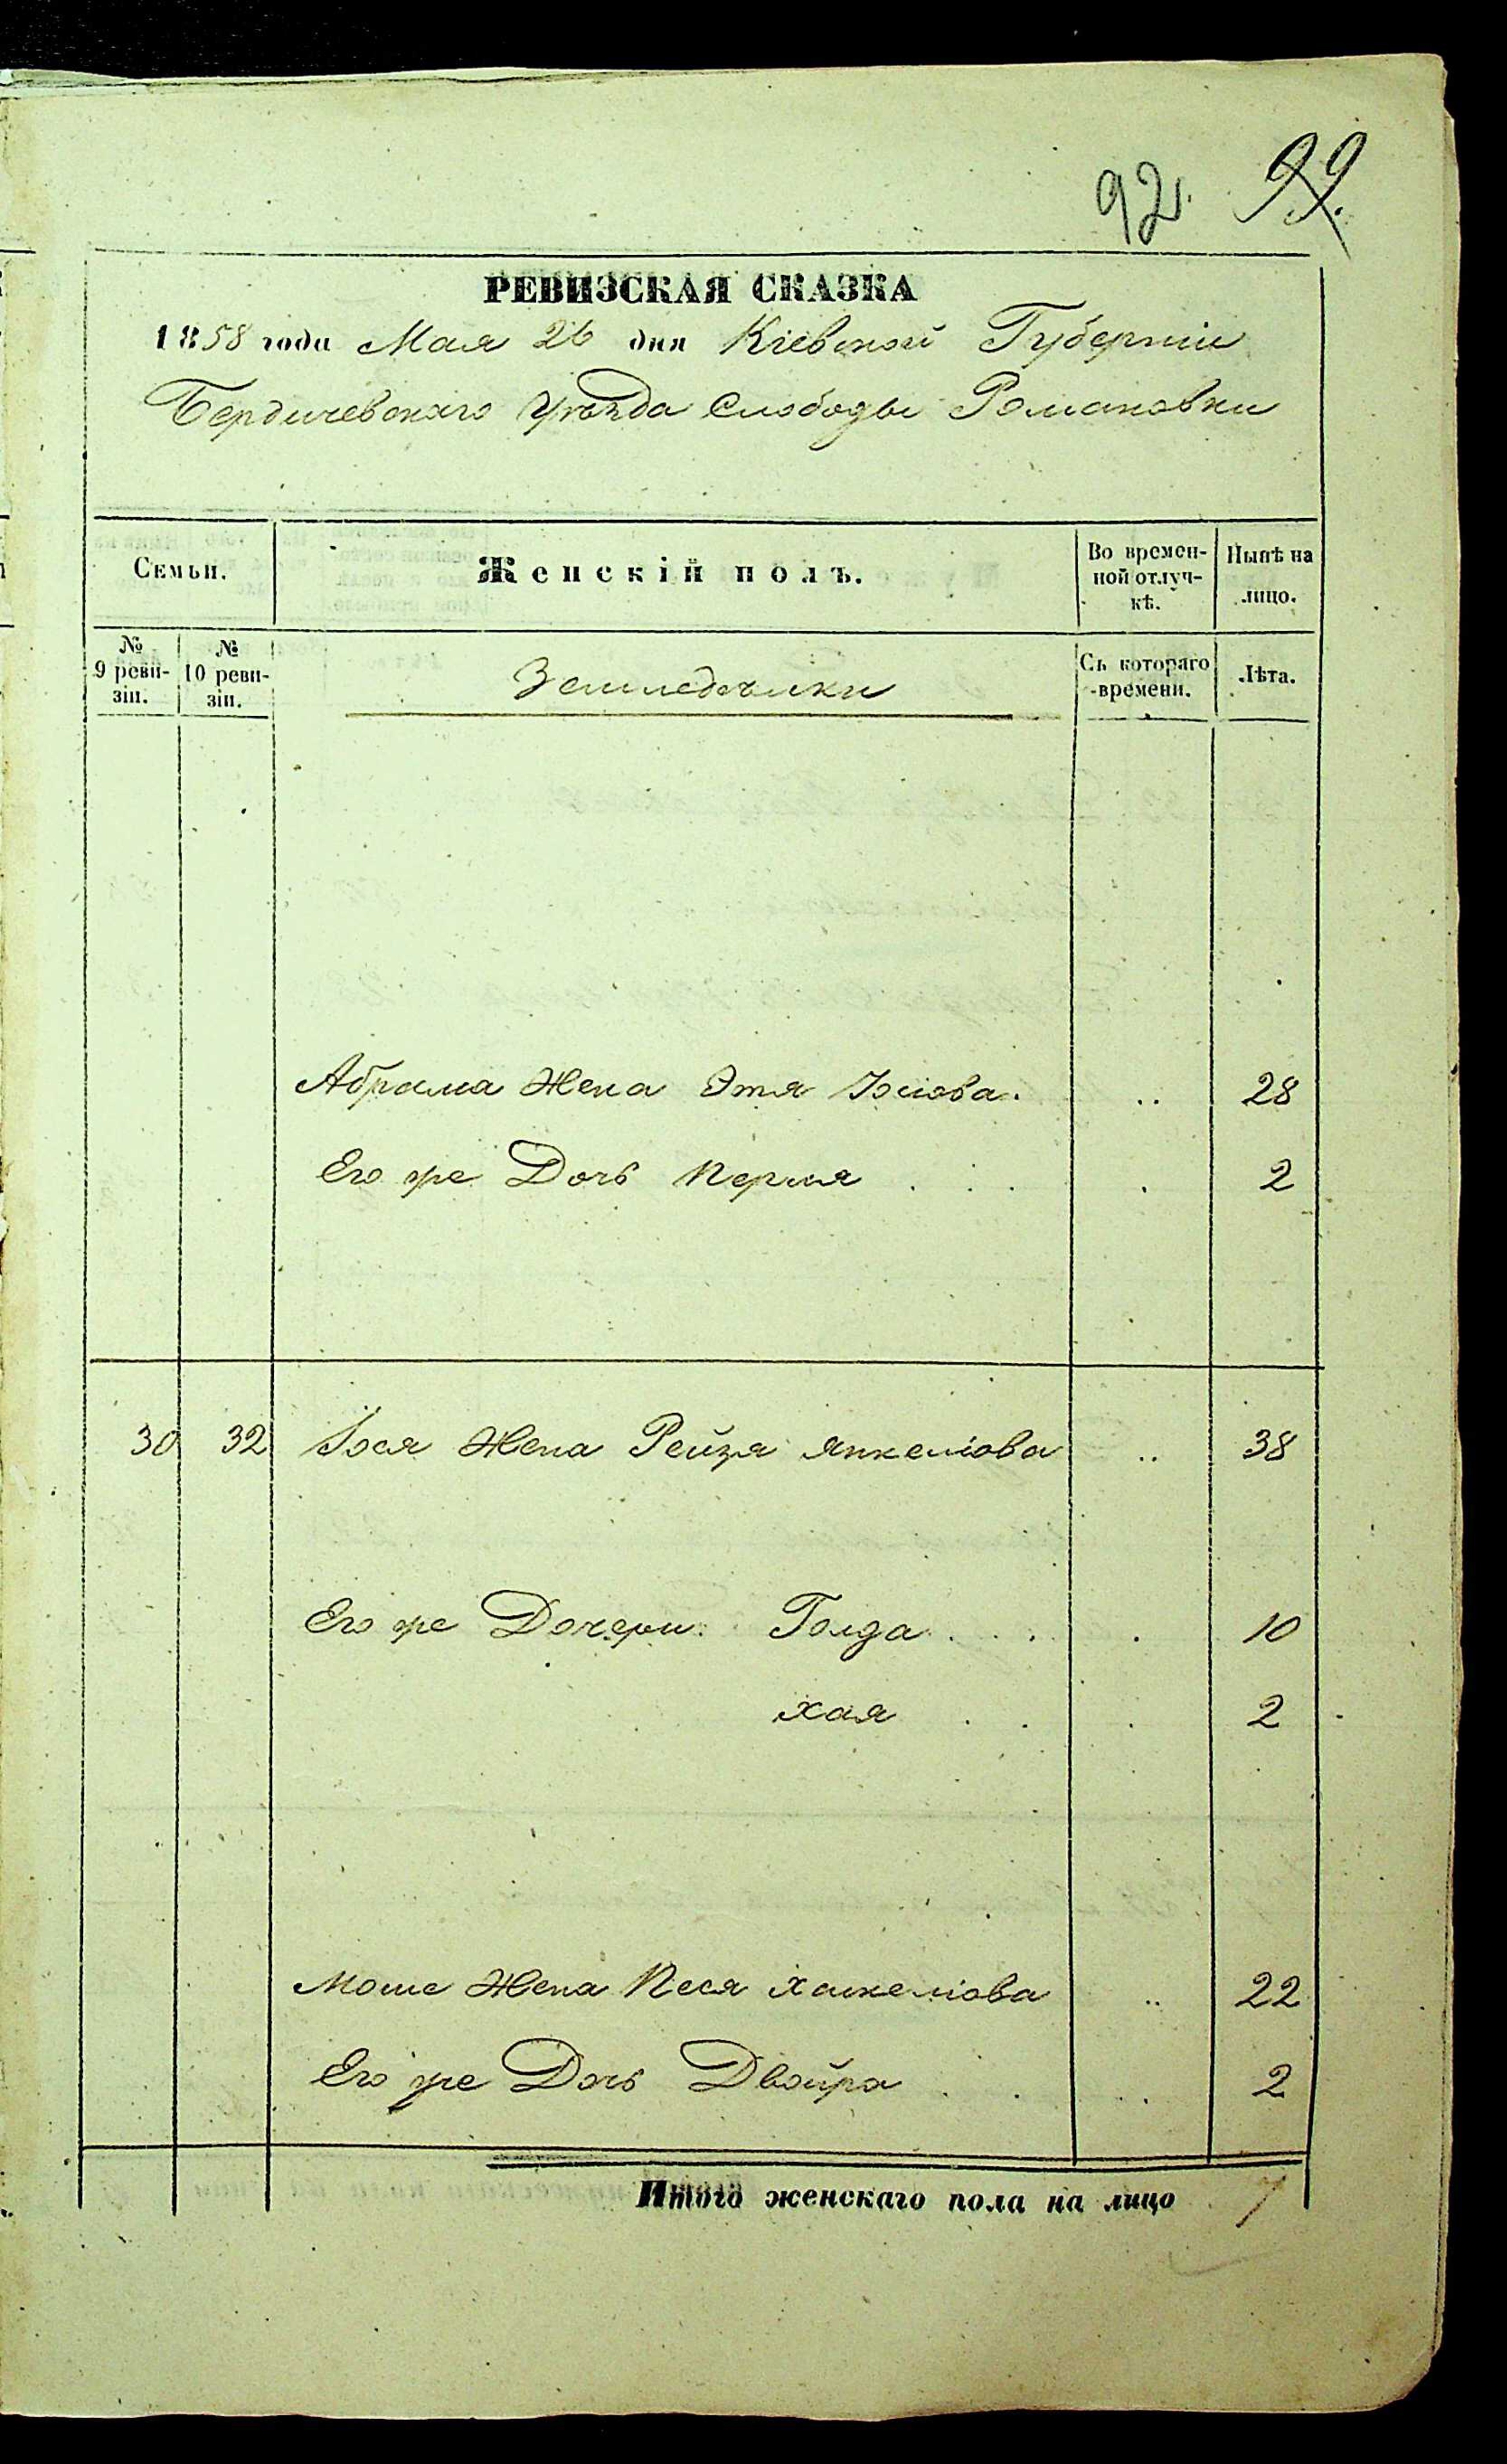 92. 99.
РЕВИЗСКАЯ СКАЗКА
1858 года Мая 26 дня Кіевской Губерніи
Бердичевскаго Уѣзда Слободы Романовки
Семьи. Женскій полъ. Во времен-ной отлуч-кѣ. Нынѣ на лицо.
№ 9 реви-зіи. № 10 реви-зіи. Земледельцы Съ котораго времени. Лѣта.
Абрама Жена Этя Іосіова .. 28
Его же Дочь Перля . . . . 2
30 32 Іося Жена Рейзя Янкеліова .. 38
Его же Дочери: Голда . . . . 10
Хая . . . 2
Моше Жена Песя Хаскеліова .. 22
Его же Дочь Двойра . . .. 2
Итого женскаго пола на лицо 7